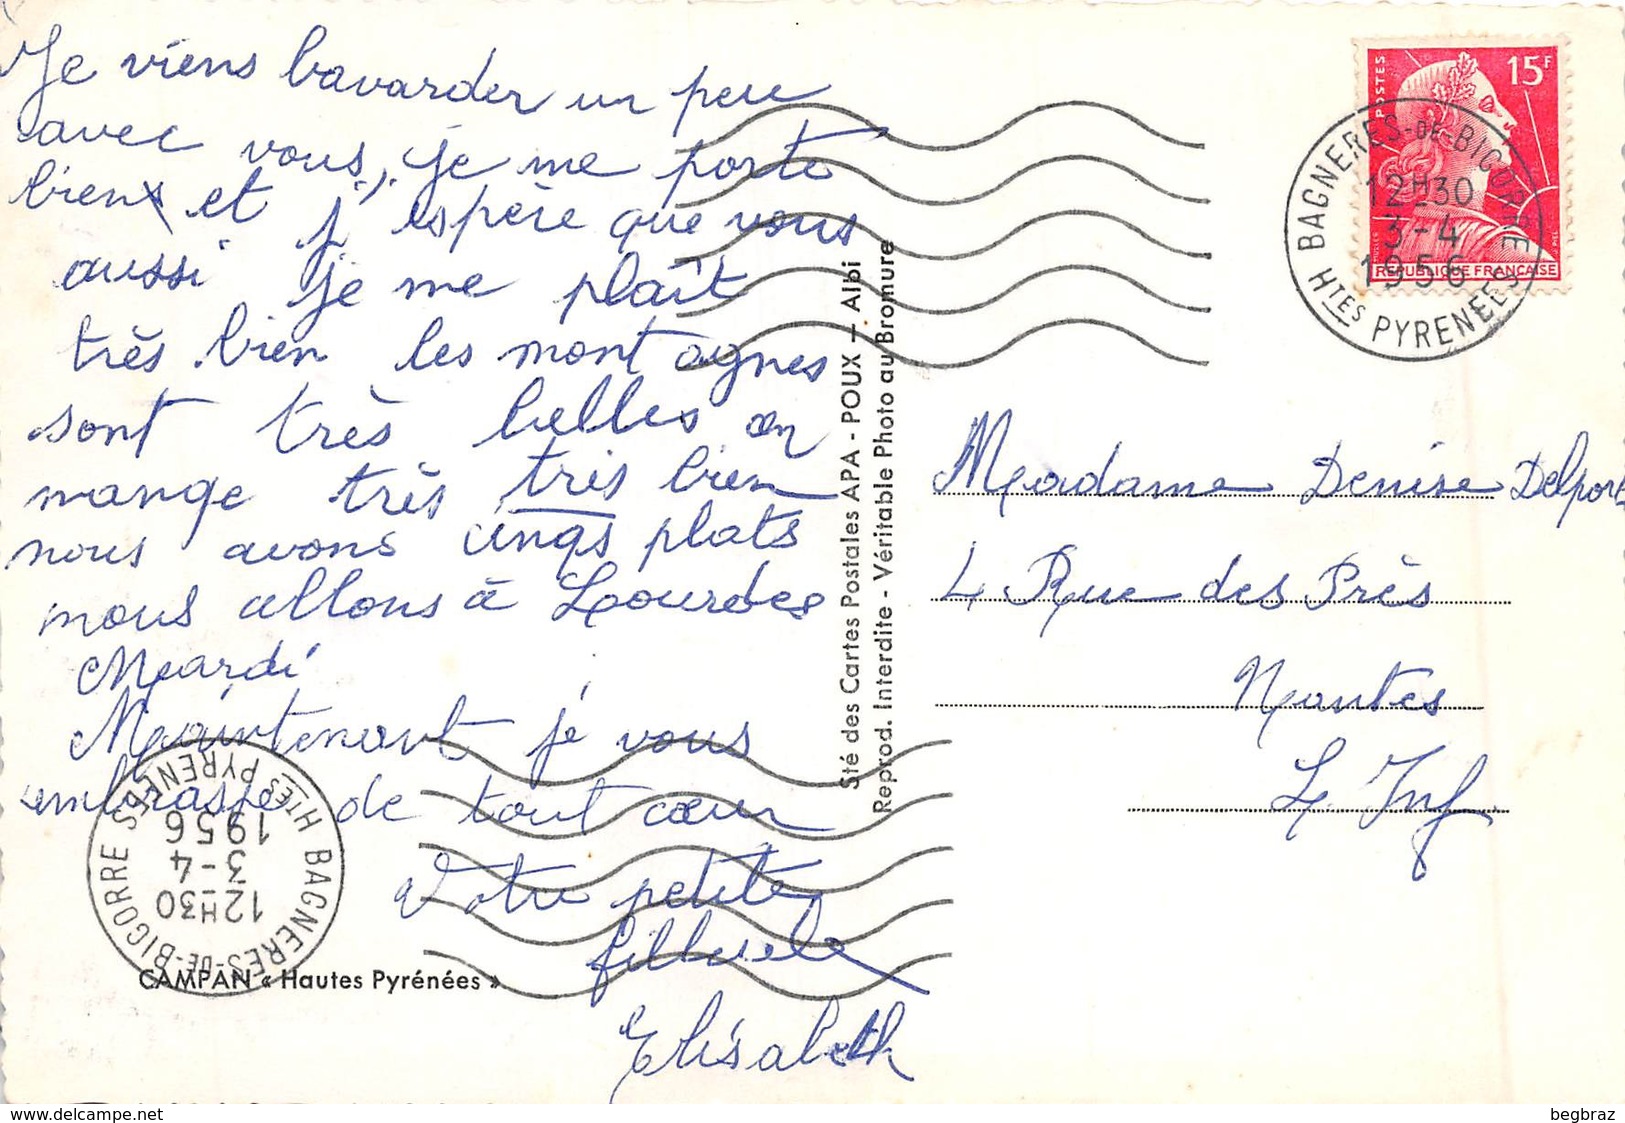 Je viens bavarder un peu
avec vous, je me porte
bien et j'espère que vous
aussi je me plaît
très bien les montagnes
sont très belles on
mange très très bien
nous avons cinqs plats
nous allons à Lourdes
Mardi
Maintenant je vous
embrasse de tout cœur
Votre petite
filleule
Elisabeth
CAMPAN « Hautes Pyrénées »
BAGNERES-DE-BIGORRE
12H30
3-4
1956
HTES PYRENEES
Sté des Cartes Postales APA - POUX — Albi
Reprod. Interdite - Véritable Photo au Bromure
POSTES
15F
REPUBLIQUE FRANÇAISE
BAGNERES-DE-BIGORRE
12H30
3-4
1956
HTES PYRENEES
Madame Denise Delport
4 Rue des Près
Nantes
L Inf
www.delcampe.net
begbraz